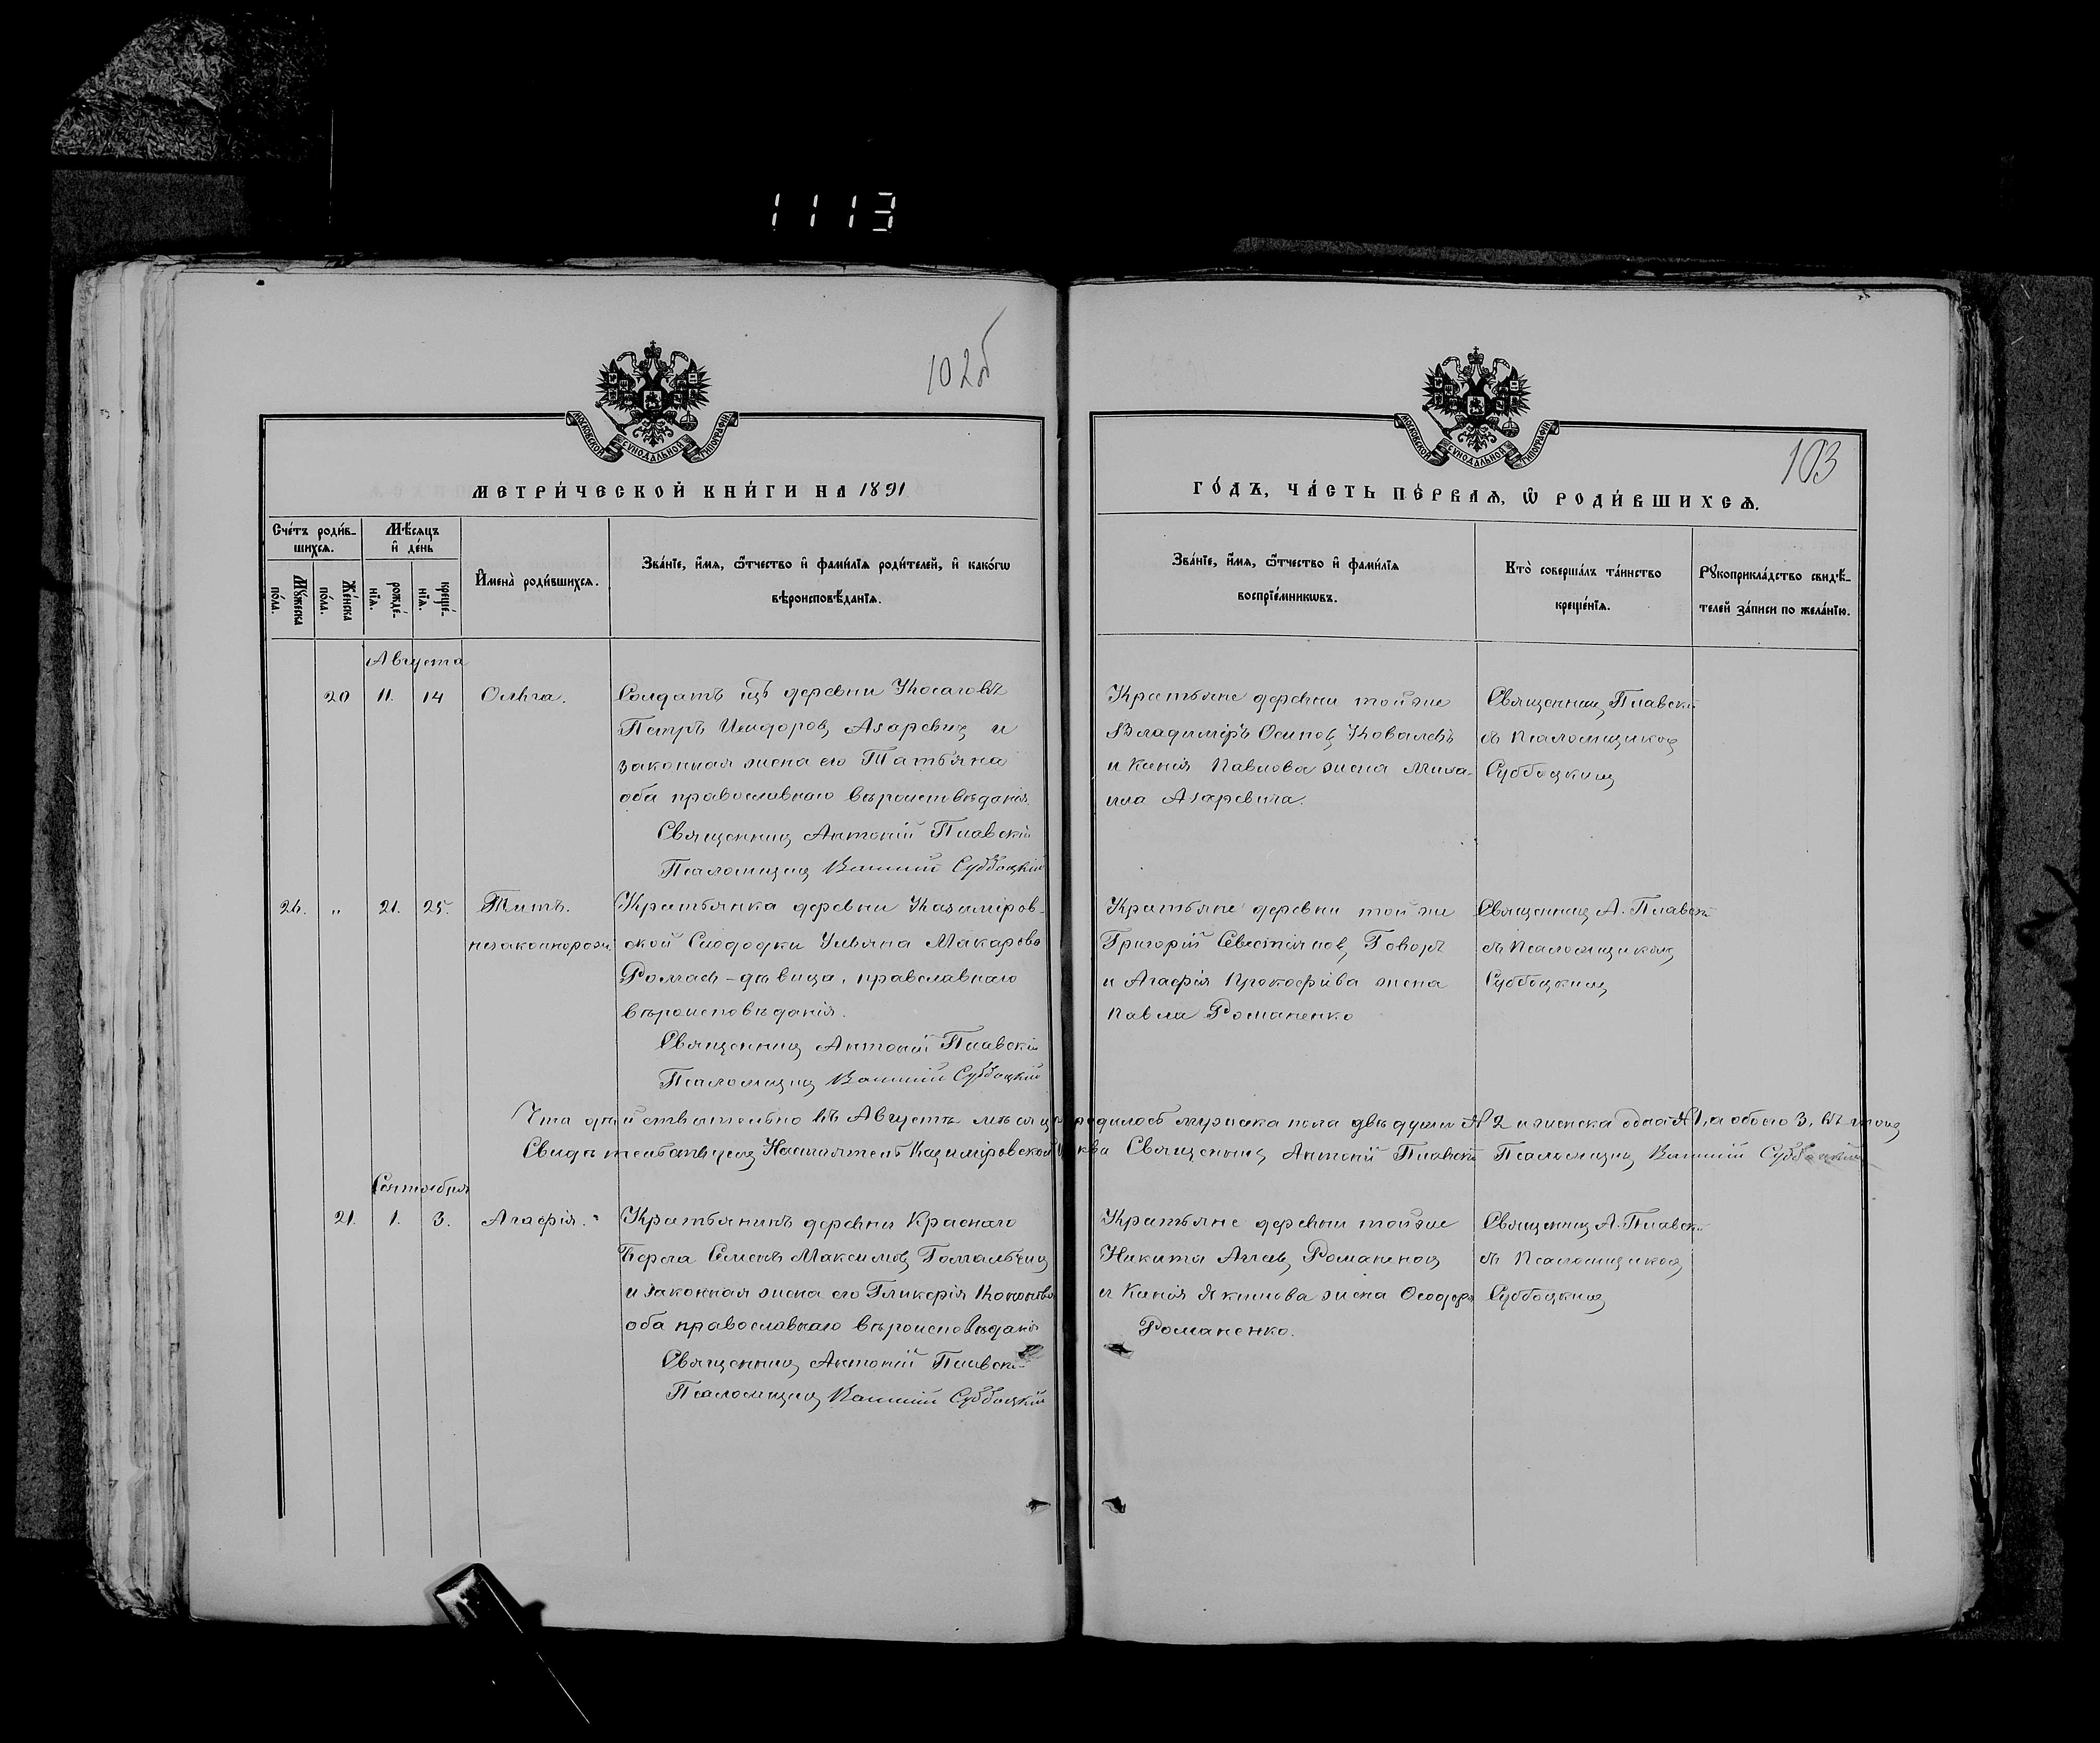 1113
102об
МОСКОВСКОЙ СѴНОДАЛЬНОЙ ТИПОГРАФІИ
МЕТРИ́ЧЕСКОЙ КНИ́ГИ НА 1891
Сче́тъ роди́в-
шихсѧ.
Мѣ́сяцъ
и҆ де́нь
Мꙋ́жеска
по́ла.
Же́нска
по́ла.
рожде́-
нїѧ.
креще́-
нїѧ.
И҆мена̀ роди́вшихсѧ.
Зва́нїе, и҆́мѧ, ѻ҆́тчество и҆ фами́лїѧ роди́телей, и҆ како́гѡ
вѣроисповѣ́данїѧ.
Августа
20 11. 14 Ольга.
Солдатъ изъ деревни Косаговъ
Петръ Исидоровъ Азаревичъ и
законная жена его Татьяна
оба православнаго вѣроисповѣданія.
Священникъ Антоній Плавскій
Псаломщикъ Василій Субботскій
26. „ 21. 25. Титъ.
незаконнорож.
Крестьянка деревни Казиміров-
ской Слободки Ульяна Макарова
Ромась - дѣвица, православнаго
вѣроисповѣданія.
Священникъ Антоній Плавскій
Псаломщикъ Василій Субботскій
Что дѣйствительно въ Августѣ мѣсяцѣ родилось мужска пола двѣ души № 2 и женска одна № 1, а обоего 3, въ томъ
Свидѣтельствуемъ Настоятель Казиміровской Церкви Священникъ Антоній Плавскій Псаломщикъ Василій Субботскій
Сентября
21. 1. 3. Агафія.
Крестьянинъ деревни Краснаго
Берега Семенъ Максимовъ
и законная жена его Гликерія
оба православнаго вѣроисповѣданія
Священникъ Антоній Плавскій
Псаломщикъ Василій Субботскій
103
МОСКОВСКОЙ СѴНОДАЛЬНОЙ ТИПОГРАФІИ
ГО́ДЪ, ЧА́СТЬ ПЕ́РВАѦ, Ѽ РОДИ́ВШИХСѦ.
Зва́нїе, и҆́мѧ, ѻ҆́тчество и҆ фами́лїѧ
воспрїе́мникѡвъ.
Кто̀ соверша́лъ та́инство
креще́нїѧ.
Рꙋкоприкла́дство свидѣ́-
телей за́писи по жела́нїю.
Крестьяне деревни тойже
Владиміръ Осиповъ Ковалевъ
и Ксенія Павлова жена Миха-
ила Азаревича.
Священникъ Плавскій
съ Псаломщикомъ
Субботскимъ
Крестьяне деревни тойже
Григорій Севастіяновъ Говоръ
и Агафія Прокофіева жена
Павла Романенко
Священникъ А. Плавскій
съ Псаломщикомъ
Субботскимъ
Крестьяне деревни тойже
Никита Романенко
и Ксенія Якимова жена Ѳеодора
Романенко.
Священникъ А. Плавскій
съ Псаломщикомъ
Субботскимъ